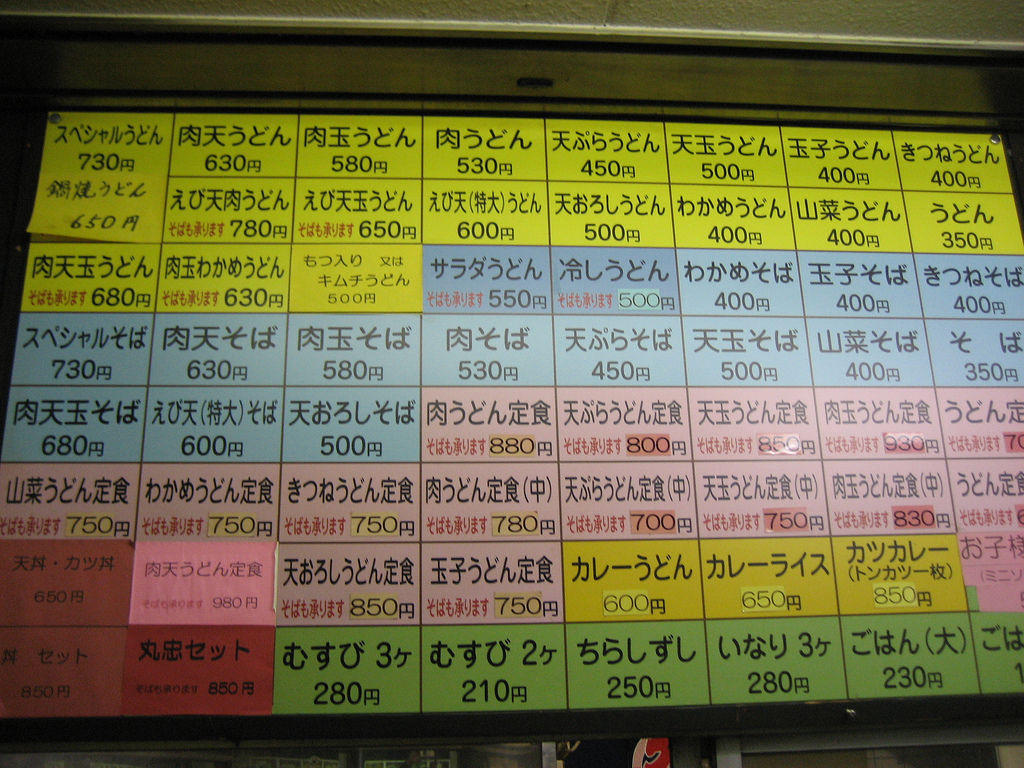 スペシャルうどん
730円
鍋焼うどん
650円
肉天うどん
630円
肉玉うどん
580円
肉うどん
530円
天ぷらうどん
450円
天玉うどん
500円
玉子うどん
400円
きつねうどん
400円
えび天肉うどん
そばも承ります 780円
えび天玉うどん
そばも承ります 650円
えび天(特大)うどん
600円
天おろしうどん
500円
わかめうどん
400円
山菜うどん
400円
うどん
350円
肉天玉うどん
そばも承ります 680円
肉玉わかめうどん
そばも承ります 630円
もつ入り 又は
キムチうどん
500円
サラダうどん
そばも承ります 550円
冷しうどん
そばも承ります 500円
わかめそば
400円
玉子そば
400円
きつねそば
400円
スペシャルそば
730円
肉天そば
630円
肉玉そば
580円
肉そば
530円
天ぷらそば
450円
天玉そば
500円
山菜そば
400円
そ ば
350円
肉天玉そば
680円
えび天(特大)そば
600円
天おろしそば
500円
肉うどん定食
そばも承ります 880円
天ぷらうどん定食
そばも承ります 800円
天玉うどん定食
そばも承ります 850円
肉玉うどん定食
そばも承ります 930円
うどん定
そばも承ります 70
山菜うどん定食
そばも承ります 750円
わかめうどん定食
そばも承ります 750円
きつねうどん定食
そばも承ります 750円
肉うどん定食(中)
そばも承ります 780円
天ぷらうどん定食(中)
そばも承ります 700円
天玉うどん定食(中)
そばも承ります 750円
肉玉うどん定食(中)
そばも承ります 830円
うどん定食
そばも承ります 6
天丼・カツ丼
650円
肉天うどん定食
そばも承ります 980円
天おろしうどん定食
そばも承ります 850円
玉子うどん定食
そばも承ります 750円
カレーうどん
600円
カレーライス
650円
カツカレー
(トンカツ一枚)
850円
お子様
(ミニソ
丼 セット
850円
丸忠セット
そばも承ります 850円
むすび 3ヶ
280円
むすび 2ヶ
210円
ちらしずし
250円
いなり 3ヶ
280円
ごはん(大)
230円
ごは
1